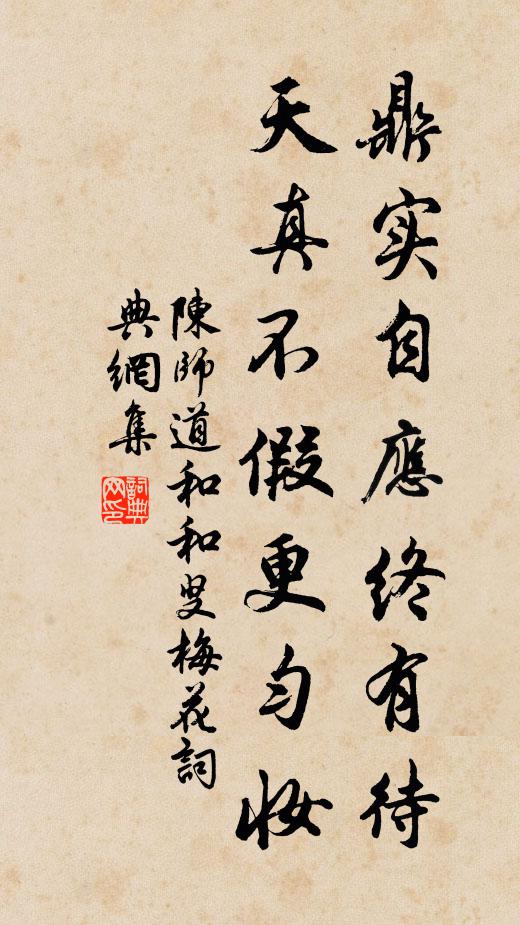 鼎实自應终有待
天真不假更匀妆
陳師道和和叟梅花詞
典網集
詞典网印